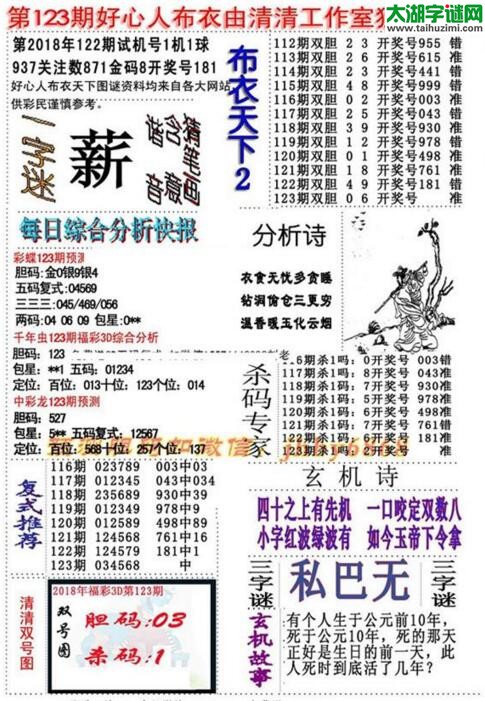 第123期好心人布衣由清清工作室
太湖字谜网
www.taihuzimi.com
第2018年122期试机号1机1球
937关注数871金码8开奖号181
好心人布衣天下图谜资料均来自各大网站,
供彩民谨慎参考。
一字迷
薪
猜笔画
含意
谐音
布衣天下2
112期双胆 2 3 开奖号955 错
113期双胆 2 6 开奖号615 准
114期双胆 2 3 开奖号441 错
115期双胆 4 8 开奖号999 错
116期双胆 0 2 开奖号003 准
117期双胆 4 5 开奖号043 准
118期双胆 3 9 开奖号930 准
119期双胆 1 2 开奖号978 错
120期双胆 0 1 开奖号498 准
121期双胆 1 8 开奖号761 准
122期双胆 4 9 开奖号181 错
123期双胆 0 6 开奖号 准
每日综合分析快报
彩蝶123期预测
胆码:金0银9银4
五码复式:04569
三三三:045/469/056
两码:04 06 09 包星:0**
千年虫123期福彩3D综合分析
胆码: 123
包星: **1 五码: 01234
定位: 百位: 013十位: 123个位: 014
中彩龙123期预测
胆码: 527
包星: 5** 五码复式: 12567
定位: 百位: 568十位: 257个位: 137
分析诗
衣食无忧多贪睡
钻洞偷仓三更穷
温香暖玉化云烟
杀码专家
116期杀1吗: 0开奖号 003错
117期杀1吗: 3开奖号 043错
118期杀1吗: 5开奖号 930准
119期杀1吗: 5开奖号 978准
120期杀1吗: 6开奖号 498准
121期杀1吗: 0开奖号 761准
122期杀1吗: 7开奖号 181准
123期杀1吗: 2开奖号 准
复式推荐
116期 023789 003中03
117期 012345 043中034
118期 235689 930中39
119期 023479 978中79
120期 012589 498中89
121期 124568 761中16
122期 124579 181中1
123期 034568 中
玄机诗
四十之上有先机 一口咬定双数八
小字红波绿波有 如今玉帝下令拿
三字谜
私巴无
三字谜
清清双号图
2018年福彩3D第123期
双号图
胆码:03
杀码:1
玄机故事
有个人生于公元前10年,
死于公元10年,死的那天
正好是生日的前一天,此
人死时到底活了几年?